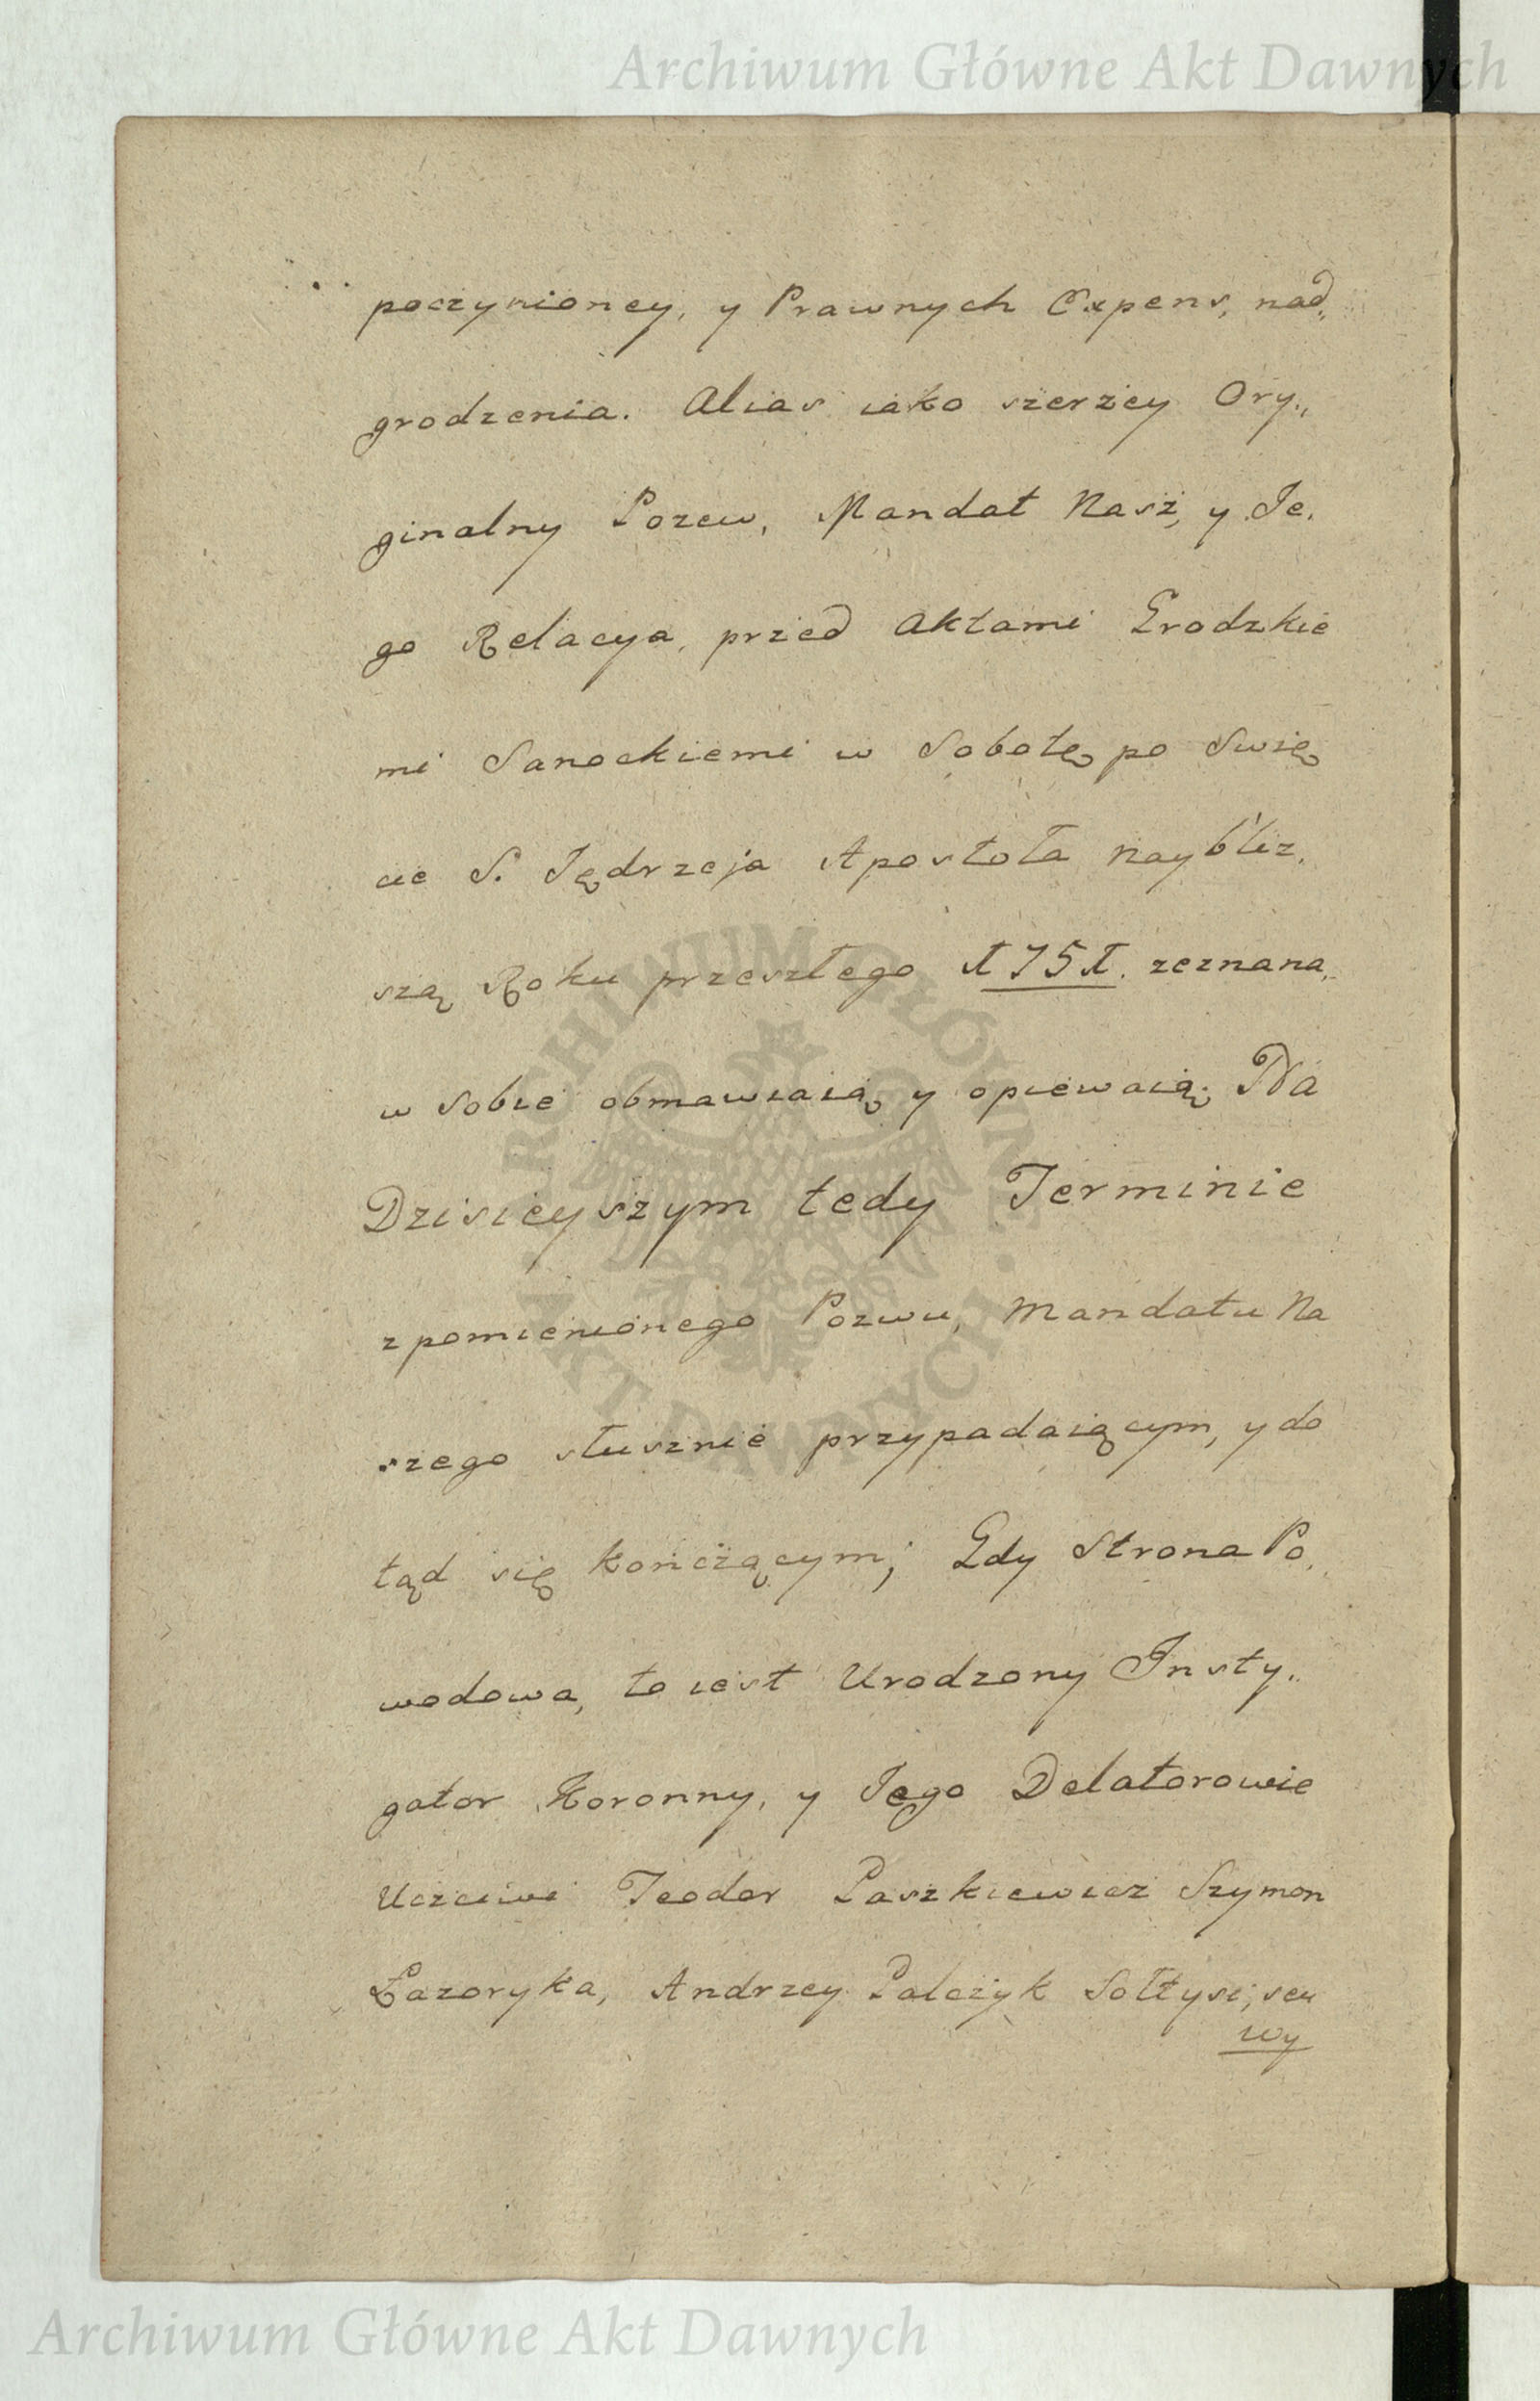 Archiwum Główne Akt Dawnych
poczynioney, y Prawnych Expens, nad„
grodzenia. Alias iako szerzey Ory„
ginalny Pozew, Mandat Nasz, y Je„
go Relacya, przed Aktami Grodzkie
mi Sanockiemi w Sobotę po Swię
cie S. Jędrzeja Apostoła naybliz„
szą Roku przeszłego 1751. zeznana,
w sobie obmawiaią y opiewaią; Na
Dzisieyszym tedy Terminie
z pomienionego Pozwu, Mandatu Na
szego słusznie przypadaiącym, y do
tąd się kończącym; Gdy Strona Po„
wodowa, to iest Urodzony Insty„
gator Koronny, y Jego Delatorowie
Uczciwi Teodor Paszkiewicz Szymon
Łazoryka, Andrzey Palczyk Sołtysi, seu
wy
ARCHIWUM GŁÓWNE AKT DAWNYCH
Archiwum Główne Akt Dawnych